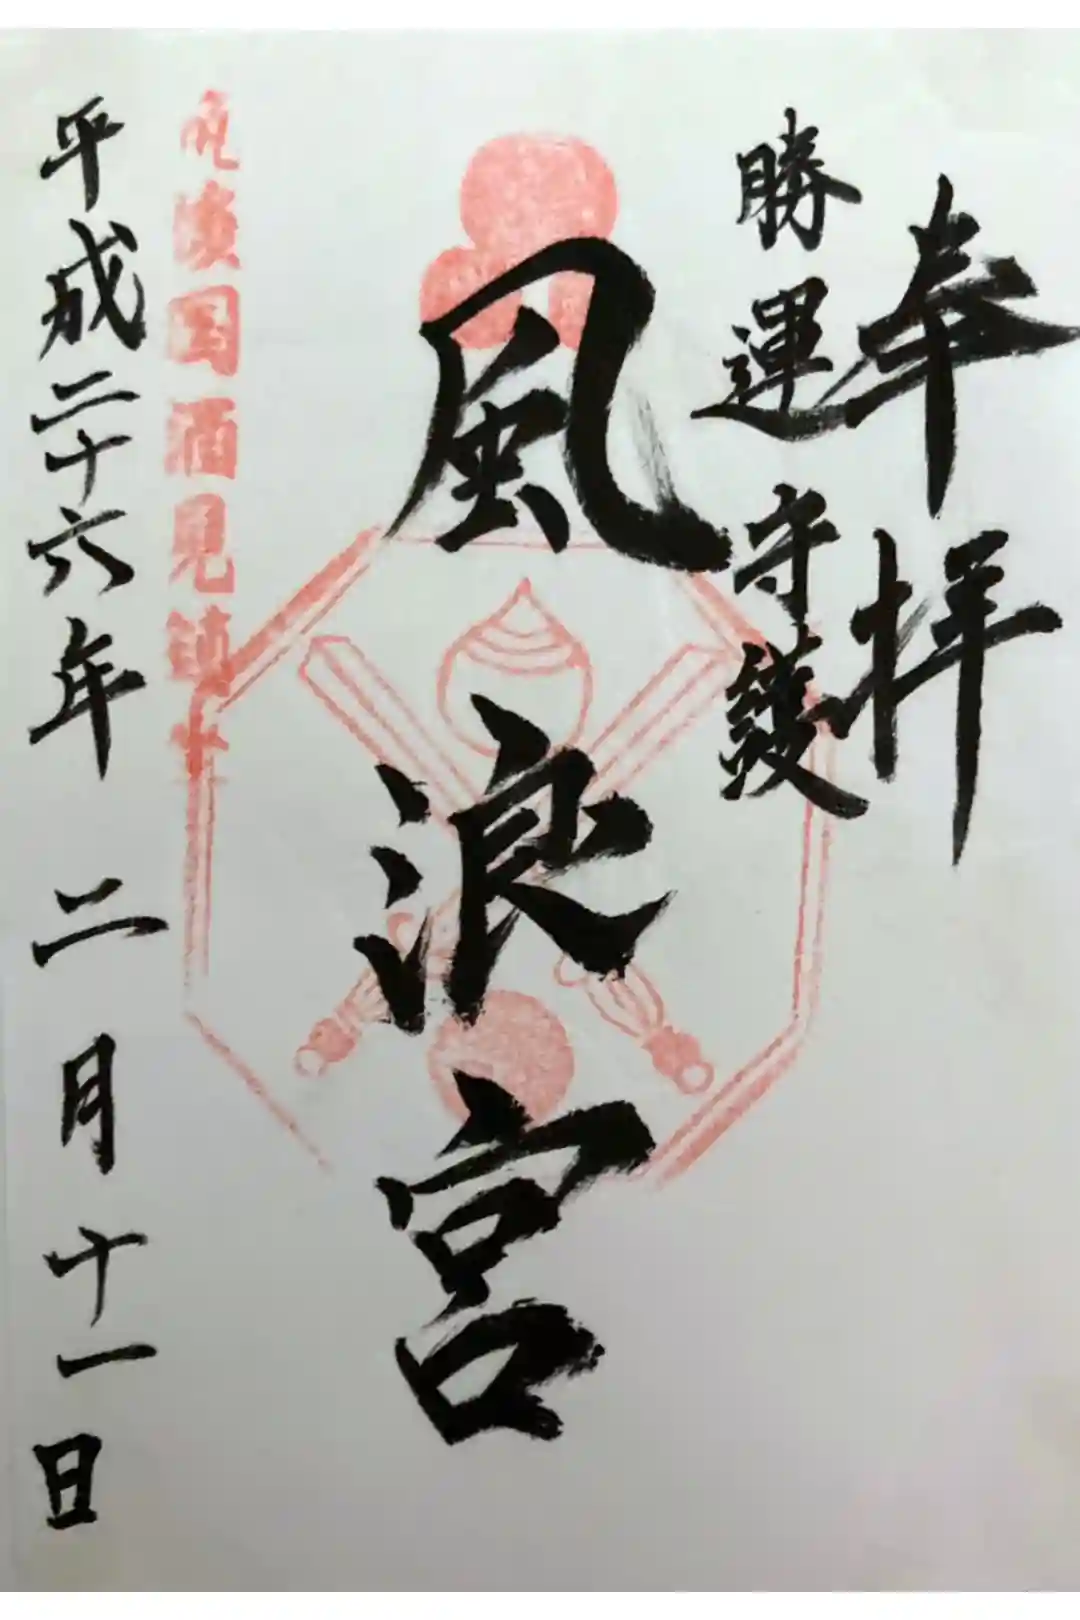 奉拝
勝運守護
風浪宮
筑後国酒見鎮座
平成二十六年 二月十一日